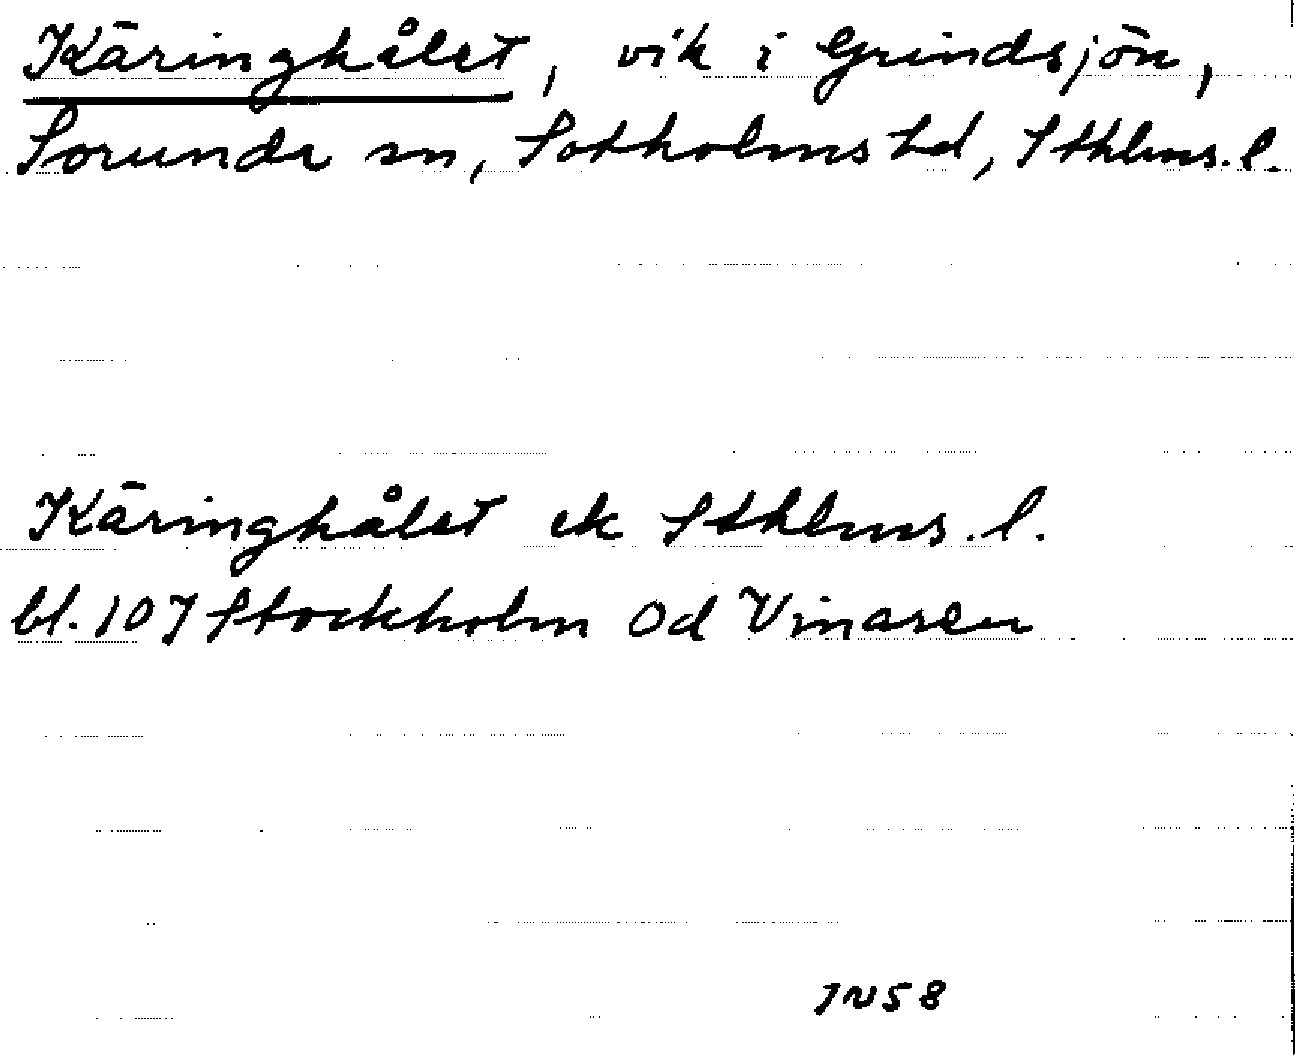 Käringhålet, vik i Grindsjön,
Sorunda sn, Sotholms hd, Sthlms. l.
Käringhålet ek Sthlms. l.
bl. 107 Stockholm Od Vinåsen
IN58